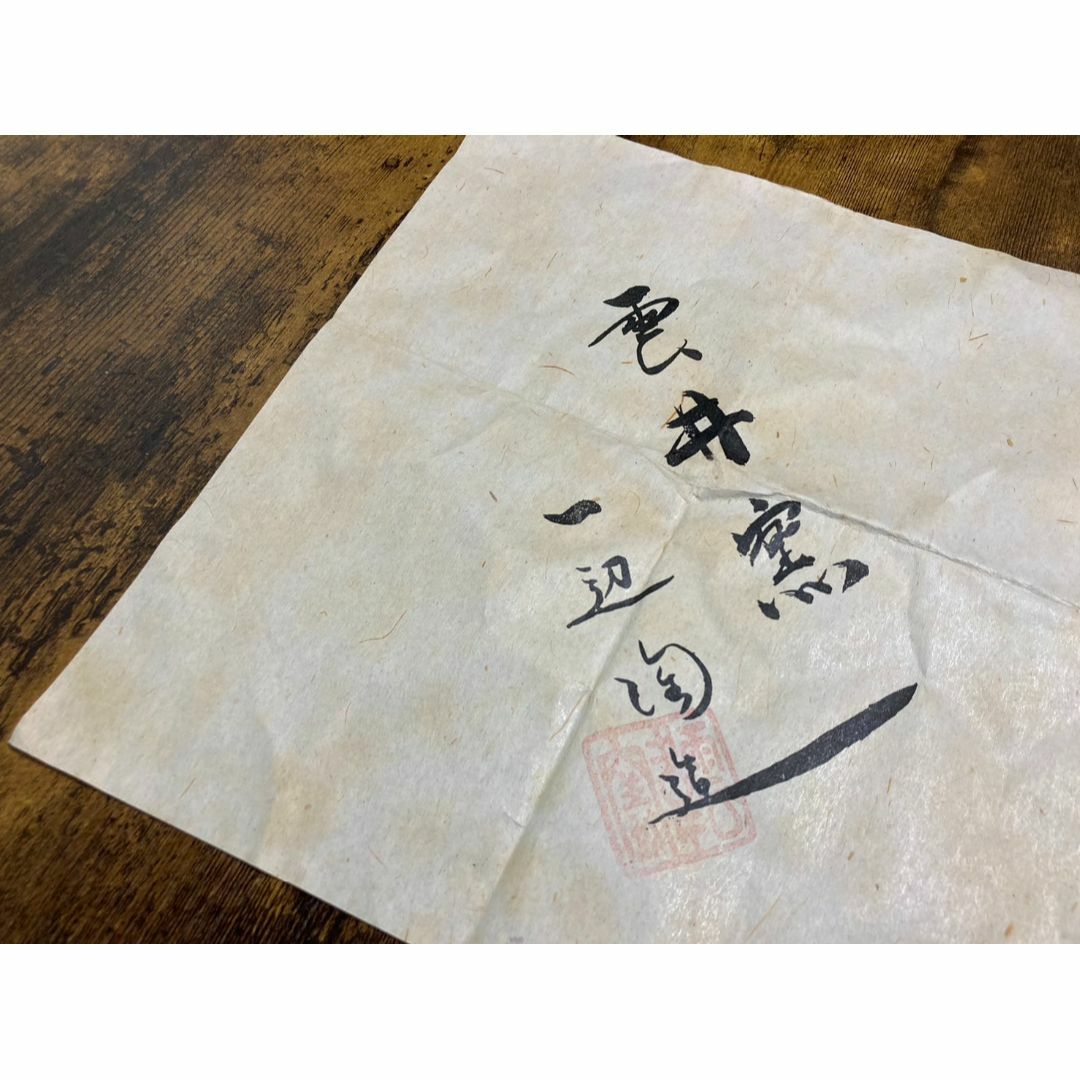 雲井窯
一辺陶造